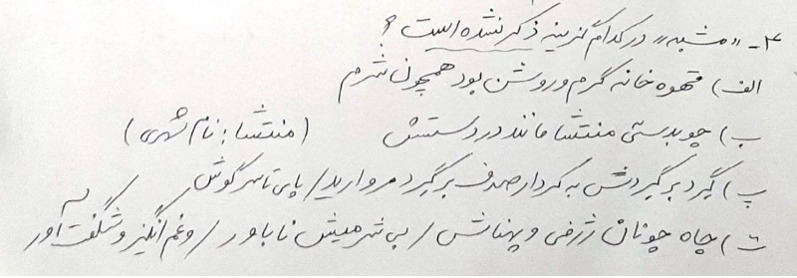 ۴- «مشبه» در کدام گزینه ذکر نشده است؟
الف) قهوه خانه گرم و روشن بود همچون شرم
ب) چوبدستی منتشا مانند در دستش (منتشا: نام شهری)
پ) گرد بر گردش به کردار صدف بر گرد مروارید / پای تا سر گوش
ت) چاه چونان ژرفی و پهناش / بی شرمیش ناباور / و غم انگیز و شگفت آور